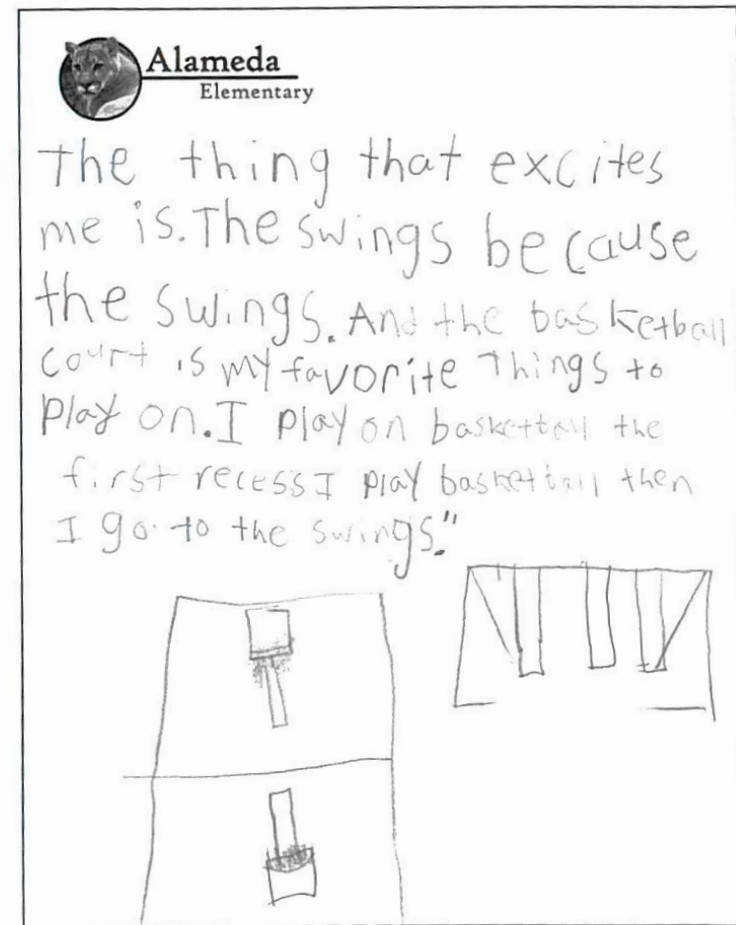 Alameda
Elementary
The thing that excites
me is. The swings because
the swings. And the basketball
court is my favorite Things to
Play on. I Play on basketball the
first recess I play basketball then
I go to the swings."